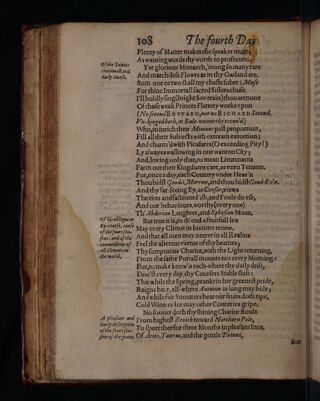 108 The fourth Day
Plenty of Matter makes the speaker mute;
As wanting words thy worth to prosecute.
Of the Sunnes continuall and daily course.
Yet glorious Monarch, 'mong so many rare
And match-less Flowers as in thy Garland are,
Som one or two shall my chaste sober Muse
For thine Immortall sacred Sisters chuse.
I'll boldly sing (bright Soverain) thou art none
Of those weak Princes Flattery works upon
(No second EDVVARD, nor no RICHARD Second,
Vn-kinged both, as Rule-unworthy reckn'd)
Who, to inrich their Minions past proportion,
Fill all their Subiects with extream extortion;
And charm'd with Pleasures (O exceeding Pity!)
Ly alwayes wallowing in one wanton City;
And, loving only that, to mean Lieutenants
Farm out their Kingdoms care, as unto Tenants.
For, once a day, each Country under Heav'n
Thou bidst Good-Morrow, and thou bidst Good-Ev'n.
And thy far-seeing Ey, as Censor, views
The rites and fashions Fish, and Foule do use,
And our behaviours, worthy (every one)
Th' Abderian Laughter, and Ephesian Moan.
Of his oblique or by-course, cause of the foure seasons: and of the commodities of all Climates in the world.
But true it is, to th'end a fruitfull lew
May every Climat in his time renew,
And that all men may neerer in all Realms
Feel the alternat virtue of thy beames;
Thy sumptuous Chariot, with the Light returning,
From the same Portall mounts not every Morning:
But, to make know'n each-where thy daily drift,
Doo'st every day, thy Coursers Stable shift:
That while the Spring, prankt in her greenest pride,
Raigns here, els-where Autumn as long may bide;
And while fair Summers heat our fruits doth ripe,
Cold Winters Ice may other Countries gripe.
A pleasant and lively description of the foure seasons of the yeare.
No sooner doth thy shining Chariot Roule
From highest Zenith toward Northern Pole,
To sport thee for three Months in pleasant Inns,
Of Aries, Taurus, and the gentle Twinns,
But